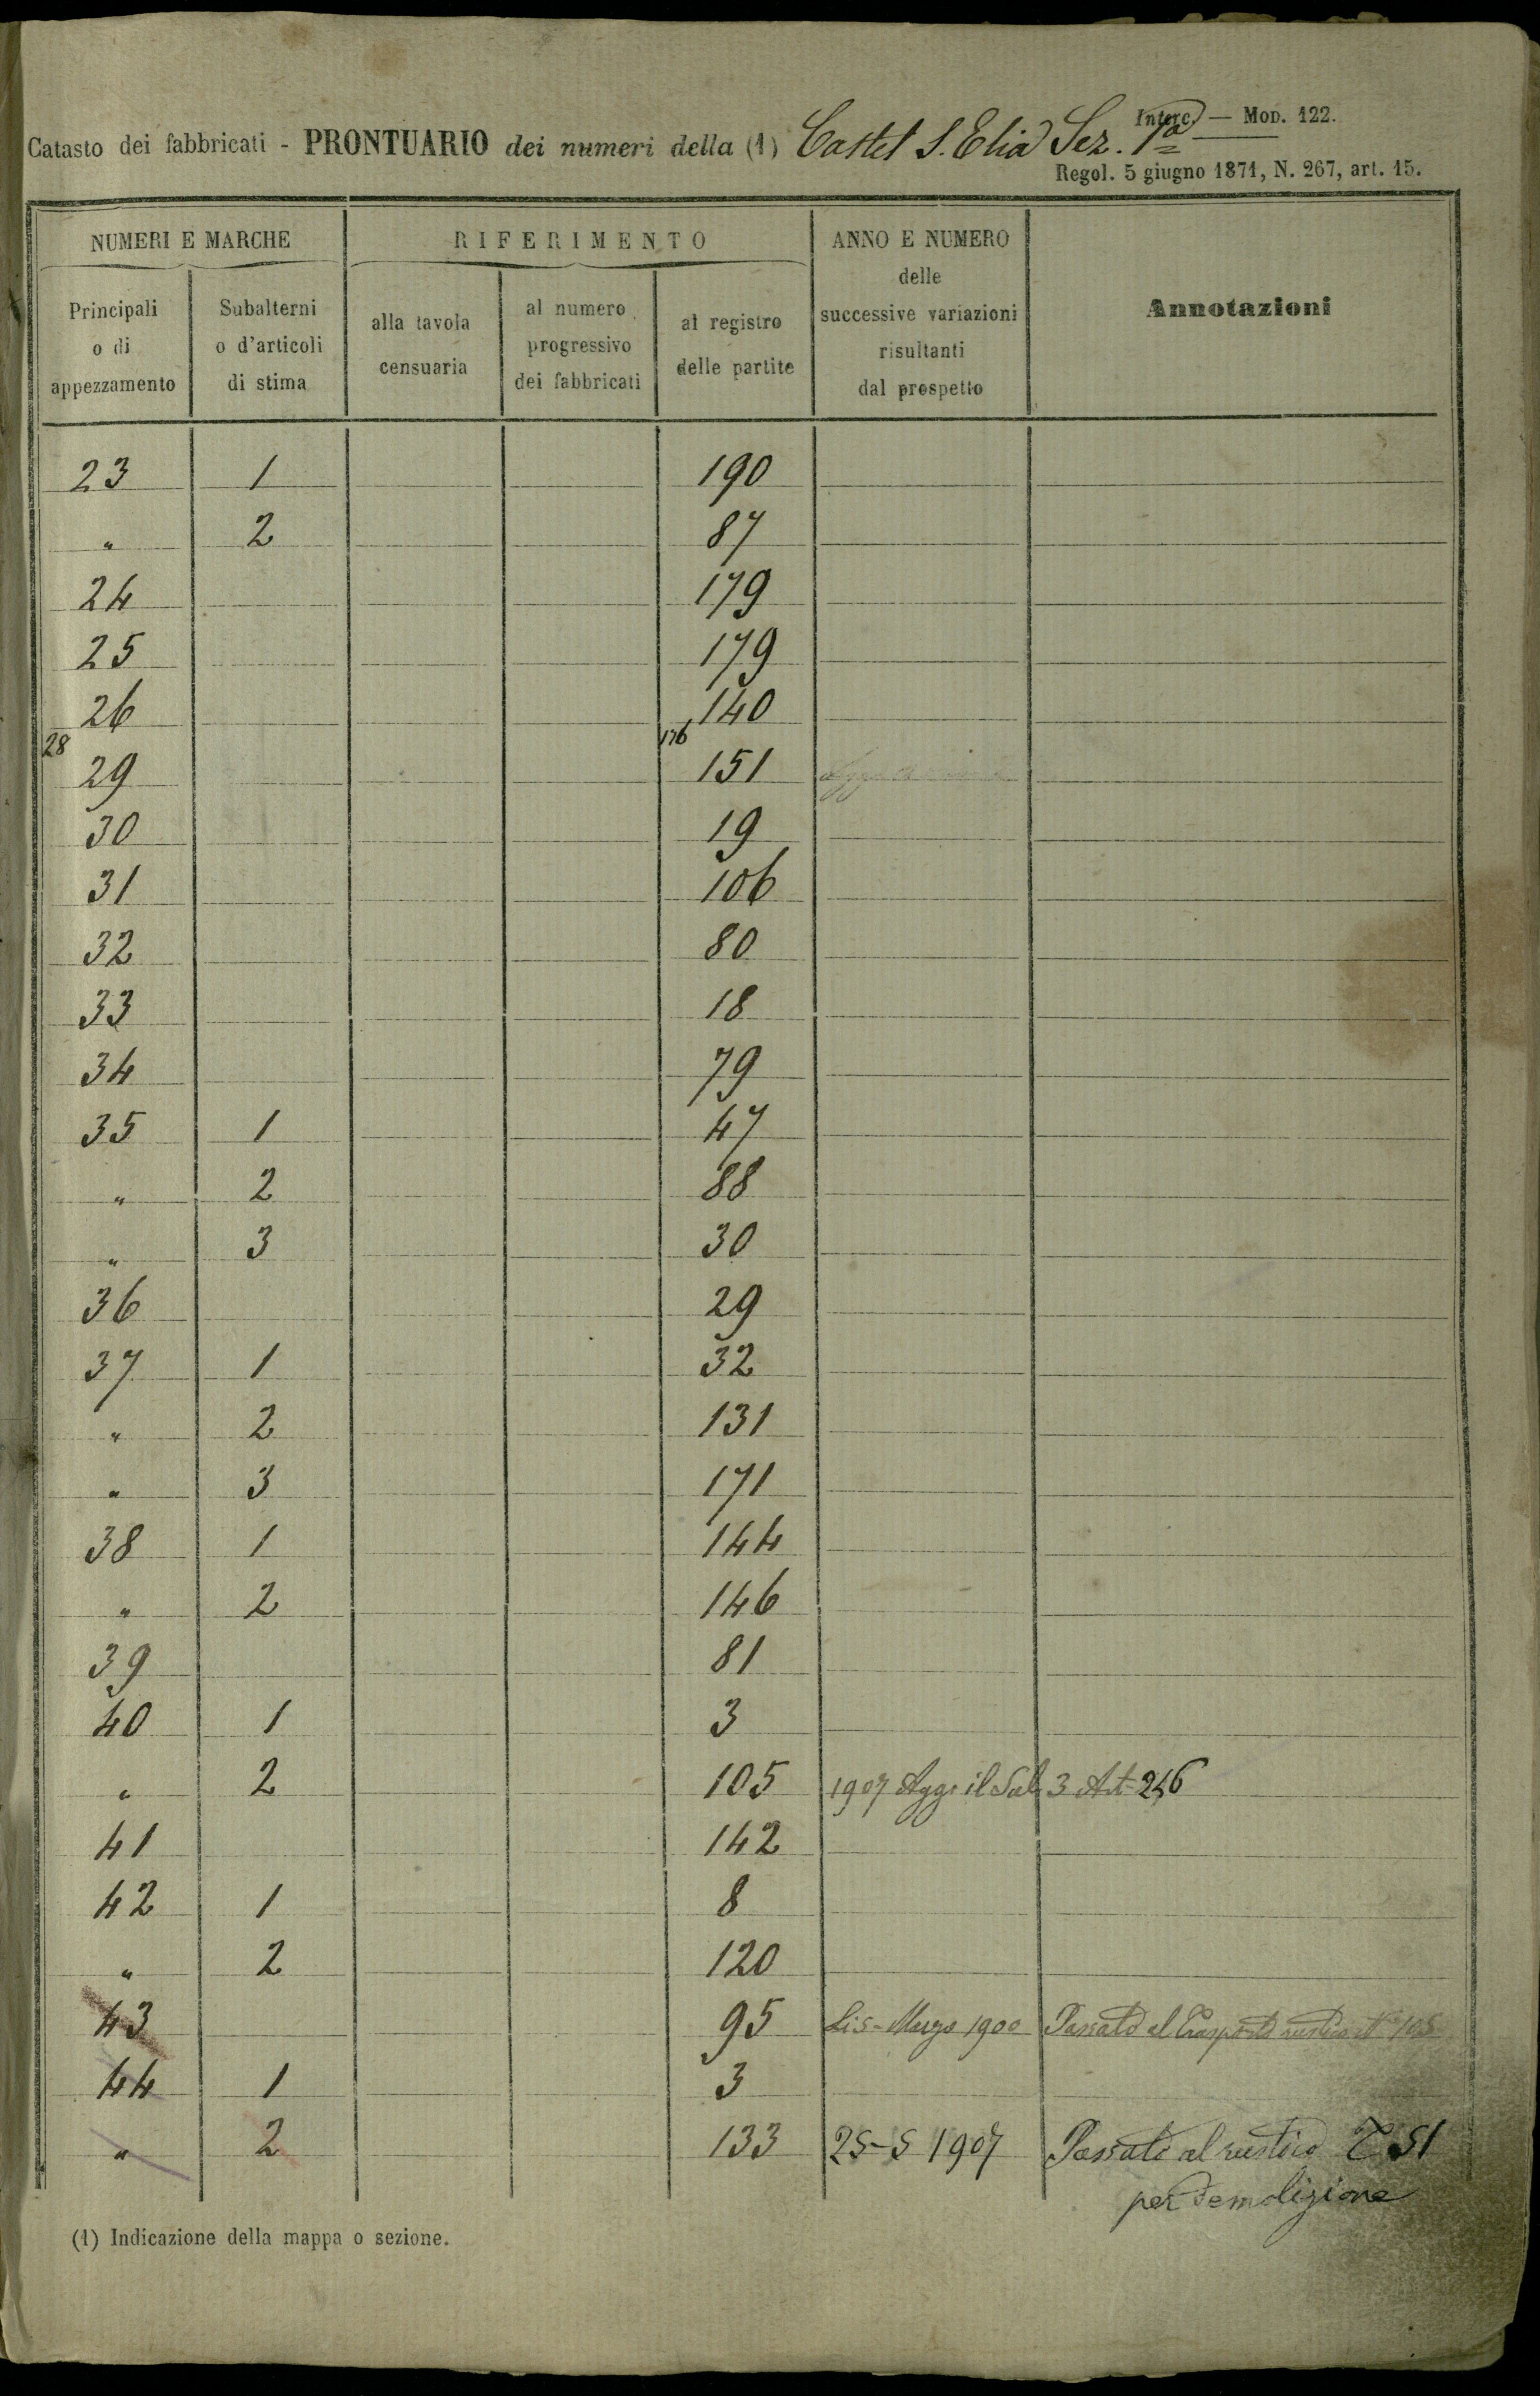 Interc. — Mod. 122.
Catasto dei fabbricati - PRONTUARIO dei numeri della (1) Castel S. Elia Sez. 1a
Regol. 5 giugno 1871, N. 267, art. 15.
NUMERI E MARCHE RIFERIMENTO ANNO E NUMERO delle successive variazioni risultanti dal prospetto Annotazioni
Principali o di appezzamento Subalterni o d'articoli di stima alla tavola censuaria al numero progressivo dei fabbricati al registro delle partite
23 1 190
" 2 87
24 179
25 179
26 140
28 176
29 151
30 19
31 106
32 80
33 18
34 79
35 1 47
" 2 88
" 3 30
36 29
37 1 32
" 2 131
" 3 171
38 1 144
" 2 146
39 81
40 1 3
" 2 105 1907 Aggo il Sub 3 Art 246
41 142
42 1 8
" 2 120
43 95 Marzo 1900 Passato al Trasporto rustico N° 105
44 1 3
" 2 133 25-5 1907 Passato al rustico T 51
per demolizione
(1) Indicazione della mappa o sezione.